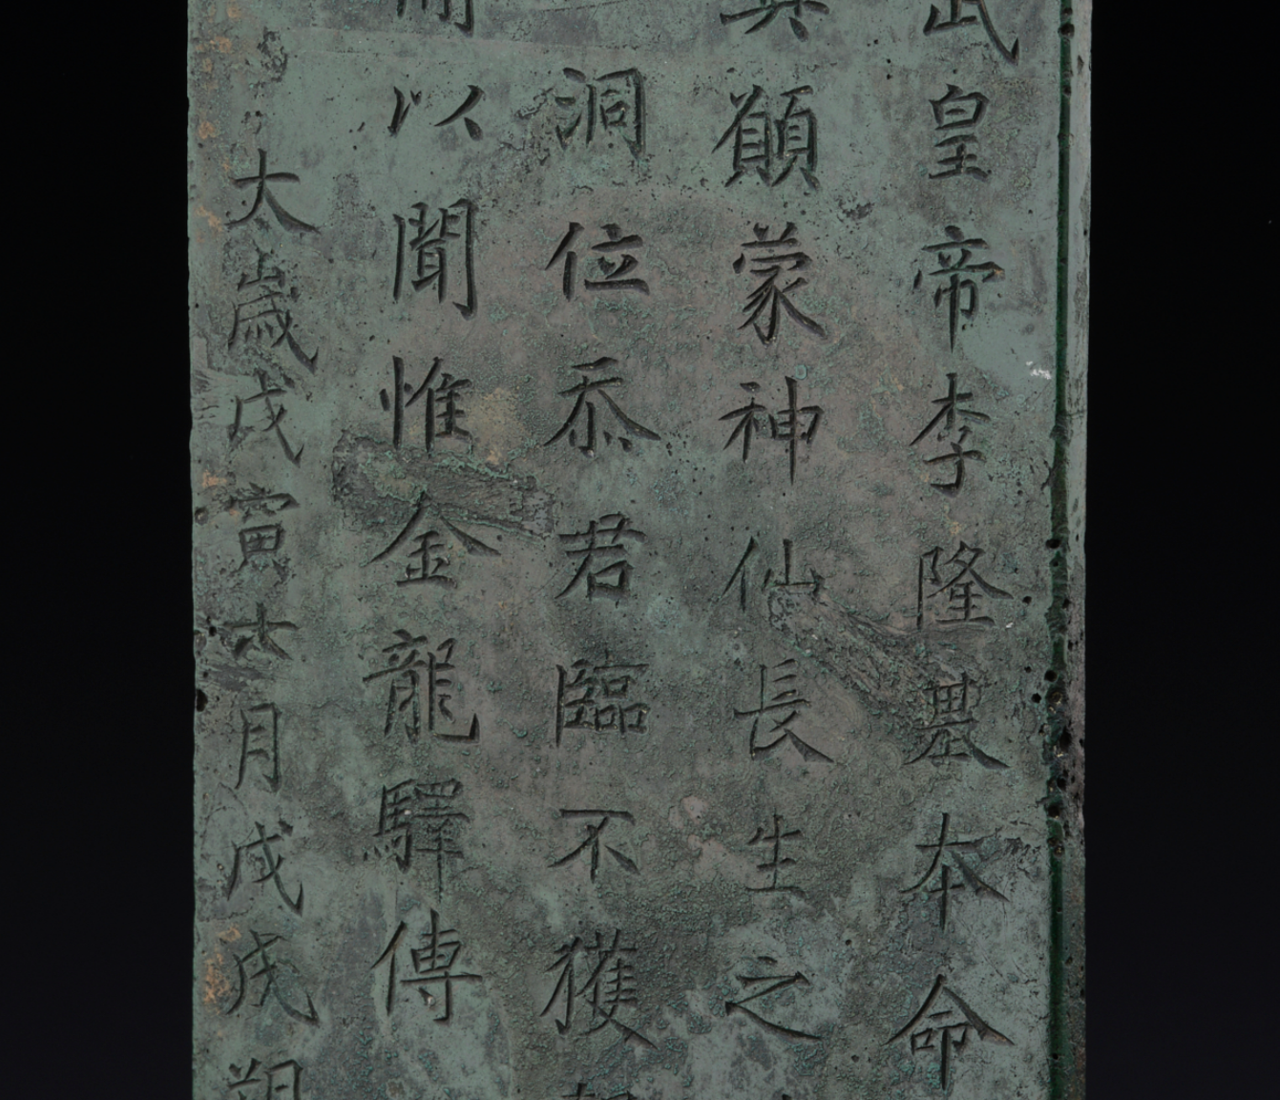 武皇帝李隆基本命
真願蒙神仙長生之
洞位忝君臨不獲
以聞惟金龍驛傳
大歲戊寅六月戊戌朔